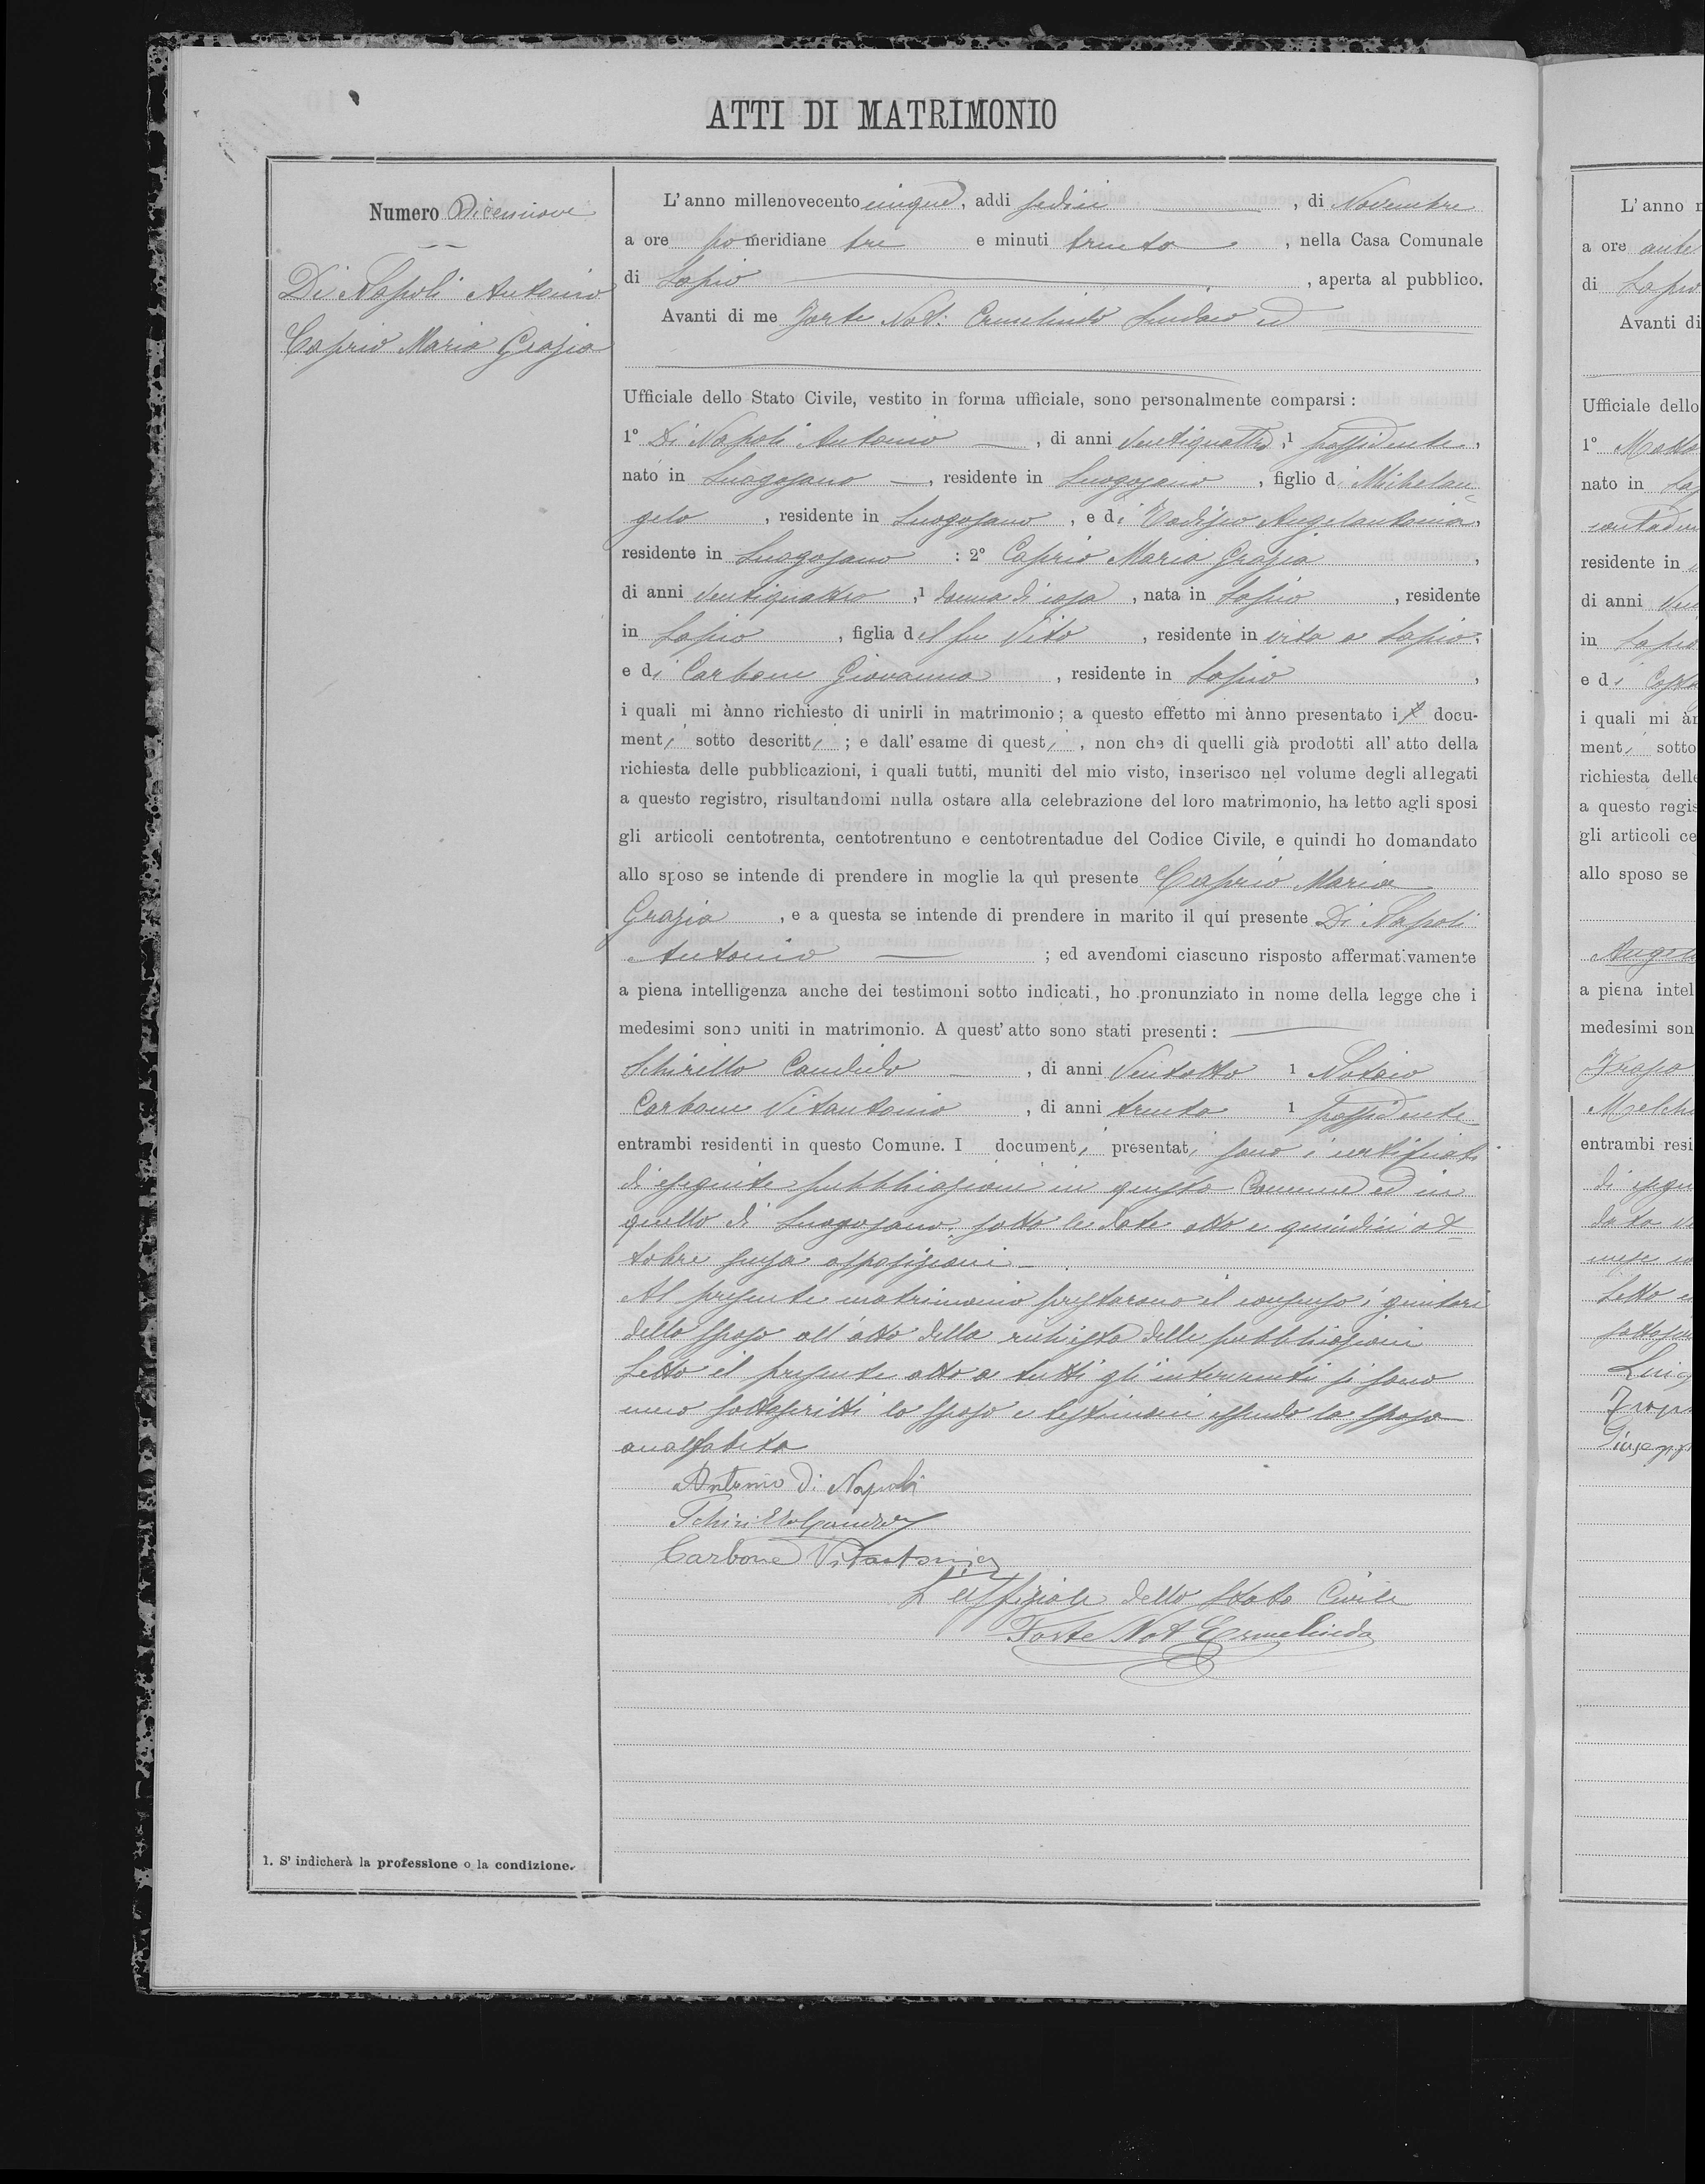 ATTI DI MATRIMONIO
Numero Diciennove
Di Napoli Antonio
Caprio Maria Grazia
L'anno millenovecento cinque, addi sedici, di Novembre
a ore pomeridiane tre e minuti trenta, nella Casa Comunale
di Lapio, aperta al pubblico.
Avanti di me Forte Not: Ermelindo Sindaco ed
Ufficiale dello Stato Civile, vestito in forma ufficiale, sono personalmente comparsi:
1° Di Napoli Antonio, di anni ventiquattro, 1 possidente,
nato in Luogosano, residente in Luogosano, figlio di Michelan-
gelo, residente in Luogosano, e di Angelantonia,
residente in Luogosano: 2° Caprio Maria Grazia,
di anni ventiquattro, 1 donna di casa, nata in Lapio, residente
in Lapio, figlia del fu Vito, residente in vita a Lapio,
e di Carbone Giovanna, residente in Lapio,
i quali mi ànno richiesto di unirli in matrimonio; a questo effetto mi ànno presentato i docu-
menti sotto descritti; e dall'esame di questi, non che di quelli già prodotti all'atto della
richiesta delle pubblicazioni, i quali tutti, muniti del mio visto, inserisco nel volume degli allegati
a questo registro, risultandomi nulla ostare alla celebrazione del loro matrimonio, ha letto agli sposi
gli articoli centotrenta, centotrentuno e centotrentadue del Codice Civile, e quindi ho domandato
allo sposo se intende di prendere in moglie la quì presente Caprio Maria
Grazia, e a questa se intende di prendere in marito il quì presente Di Napoli
Antonio; ed avendomi ciascuno risposto affermativamente
a piena intelligenza anche dei testimoni sotto indicati, ho pronunziato in nome della legge che i
medesimi sono uniti in matrimonio. A quest'atto sono stati presenti:
Schirillo Candido, di anni ventotto 1 Notaio
Carbone Vitantonio, di anni trenta 1 possidente
entrambi residenti in questo Comune. I documenti presentati sono i certificati
di eseguite pubblicazioni in questo Comune ed in
quello di Luogosano, sotto le date otto e quindici ot-
tobre senza opposizioni.
Al presente matrimonio prestarono il consenso i genitori
dello sposo all'atto della richiesta delle pubblicazioni
Letto il presente atto a tutti gli intervenuti si sono
meco sottoscritti lo sposo e testimoni essendo la sposa
analfabeta
Antonio Di Napoli
Schirillo Candido
Carbone Vitantonio
L'uffiziale dello Stato Civile
Forte Not Ermelindo
1. S'indicherà la professione o la condizione.
L'anno
a ore ante
di Lapio
Avanti di
Ufficiale dello
1°
nato in
residente in
di anni
in Lapio
e di
i quali mi
menti sotto
richiesta delle
a questo regis
gli articoli ce
allo sposo se
a piena intel
medesimi son
entrambi resi